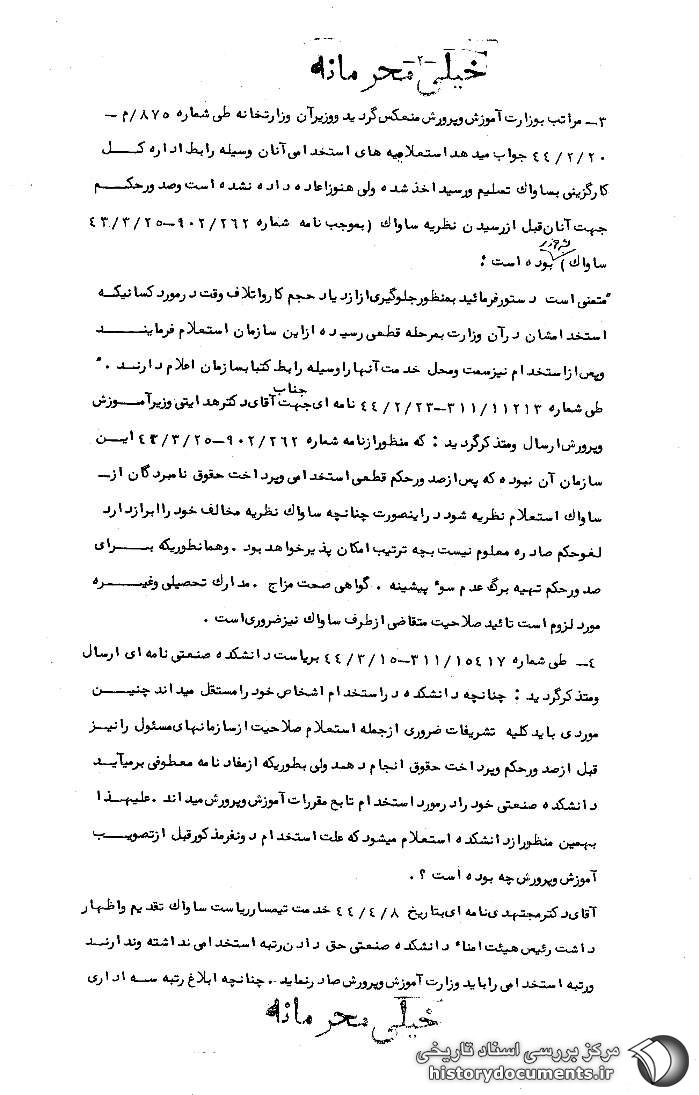 -۲-
خیلی محرمانه
۳- مراتب بوزارت آموزش وپرورش منعکس گردید ووزیرآن وزارتخانه طی شماره ۸۷۵/م -
۴۴/۲/۲۰ جواب میدهد استعلامیه های استخدامی آنان وسیله رابط اداره کل
کارگزینی بساواک تسلیم ورسید اخذ شده ولی هنوزاعاده داده نشده است وصدورحکم
جهت آنان قبل ازرسیدن نظریه ساواک (بموجب نامه شماره ۹۰۲/۲۶۲-۴۳/۳/۲۵
ساواک) بوده است :
"متمنی است دستورفرمائید بمنظورجلوگیری ازازدیاد حجم کارواتلاف وقت درمورد کسانیکه
استخدامشان درآن وزارت بمرحله قطعی رسیده ازاین سازمان استعلام فرمایند
وپس ازاستخدام نیزسمت ومحل خدمت آنهاراوسیله رابط کتبا بسازمان اعلام دارند ."
جناب
طی شماره ۳۱۱/۱۱۲۱۳-۴۴/۲/۲۳ نامه ای جهت آقای دکترهدایتی وزیرآموزش
وپرورش ارسال ومتذکرگردید : که منظورازنامه شماره ۹۰۲/۲۶۲-۴۳/۳/۲۵ این
سازمان آن نبوده که پس ازصدورحکم قطعی استخدامی وپرداخت حقوق نامبردگان از-
ساواک استعلام نظریه شود دراینصورت چنانچه ساواک نظریه مخالف خود راابرازدارد
لغوحکم صادره معلوم نیست بچه ترتیب امکان پذیرخواهد بود .وهمانطوریکه برای
صدورحکم تهیه برگ عدم سوء پیشینه . گواهی صحت مزاج .مدارک تحصیلی وغیره
مورد لزوم است تائید صلاحیت متقاضی ازطرف ساواک نیزضروری است .
۴- طی شماره ۳۱۱/۱۵۴۱۷-۴۴/۳/۱۵ بریاست دانشکده صنعتی نامه ای ارسال
ومتذکرگردید : چنانچه دانشکده دراستخدام اشخاص خودرامستقل میداند چنین
موردی باید کلیه تشریفات ضروری ازجمله استعلام صلاحیت ازسازمانهای مسئول رانیز
قبل ازصدورحکم وپرداخت حقوق انجام دهد ولی بطوریکه ازمفاد نامه معطوفی برمیآید
دانشکده صنعتی خودرادرمورد استخدام تابع مقررات آموزش وپرورش میداند .علیهذا
بهمین منظورازدانشکده استعلام میشود که علت استخدام دونفرمذکورقبل ازتصویب
آموزش وپرورش چه بوده است ؟ .
آقای دکترمجتهدی نامه ای بتاریخ ۴۴/۴/۸ خدمت تیمسارریاست ساواک تقدیم واظهار
داشت رئیس هیئت امناء دانشکده صنعتی حق دادن رتبه استخدامی نداشته وندارند
ورتبه استخدامی راباید وزارت آموزش وپرورش صادرنماید .. چنانچه ابلاغ رتبه سه اداری
خیلی محرمانه
مرکز بررسی اسناد تاریخی
historydocuments.ir